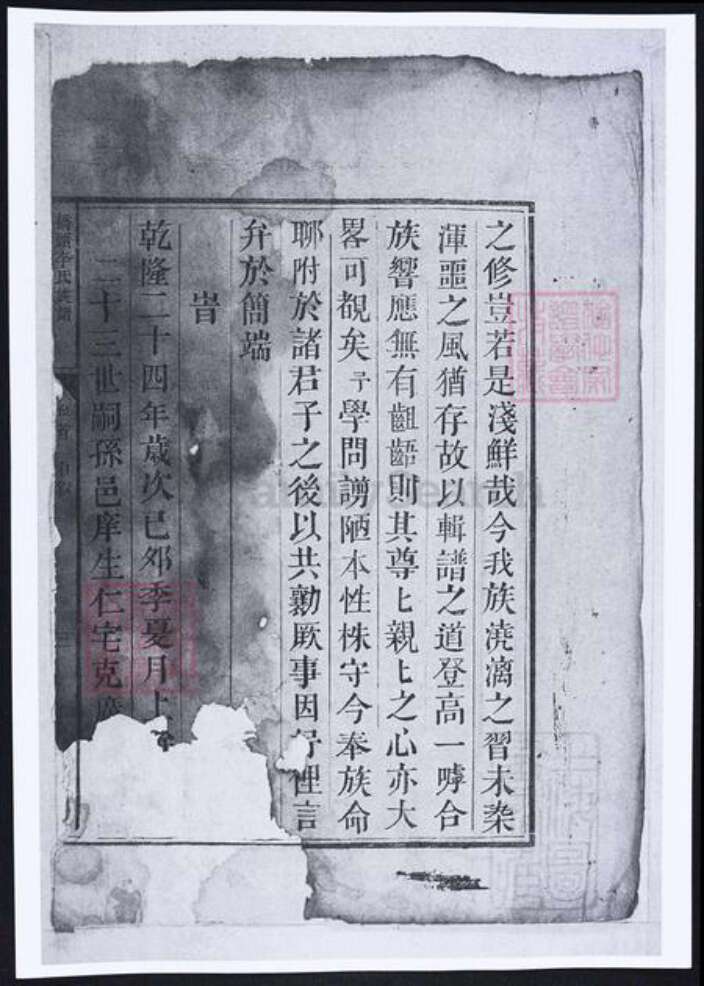 之修豈若是淺鮮哉今我族澆漓之習未染
渾噩之風猶存故以輯譜之道登高一嘑合
族響應無有齟齬則其尊匕親匕之心亦大
畧可覩矣予學問譾陋本性株守今奉族命
聊附於諸君子之後以共勷厥事因行俚言
弁於簡端
旹
乾隆二十四年歲次己夘季夏月上
二十三世嗣孫邑庠生仁宅克
李氏族譜